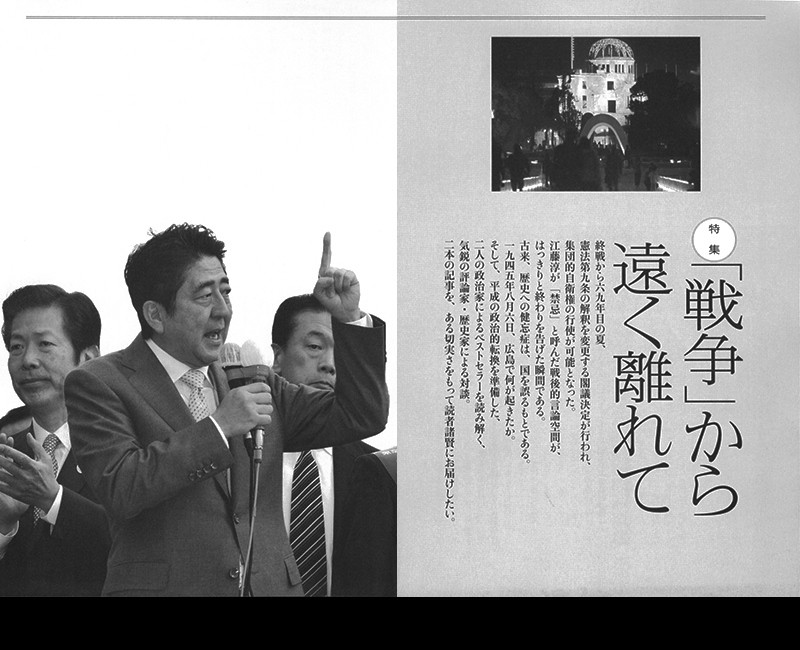 特集
「戦争」から
遠く離れて
終戦から六九年目の夏、
憲法第九条の解釈を変更する閣議決定が行われ、
集団的自衛権の行使が可能となった。
江藤淳が「禁忌」と呼んだ戦後的言論空間が、
はっきりと終わりを告げた瞬間である。
古来、歴史への健忘症は、国を誤るもとである。
一九四五年八月六日、広島で何が起きたか。
そして、平成の政治的転換を準備した、
二人の政治家によるベストセラーを読み解く、
気鋭の評論家・歴史家による対談。
二本の記事を、ある切実さをもって読者諸賢にお届けしたい。